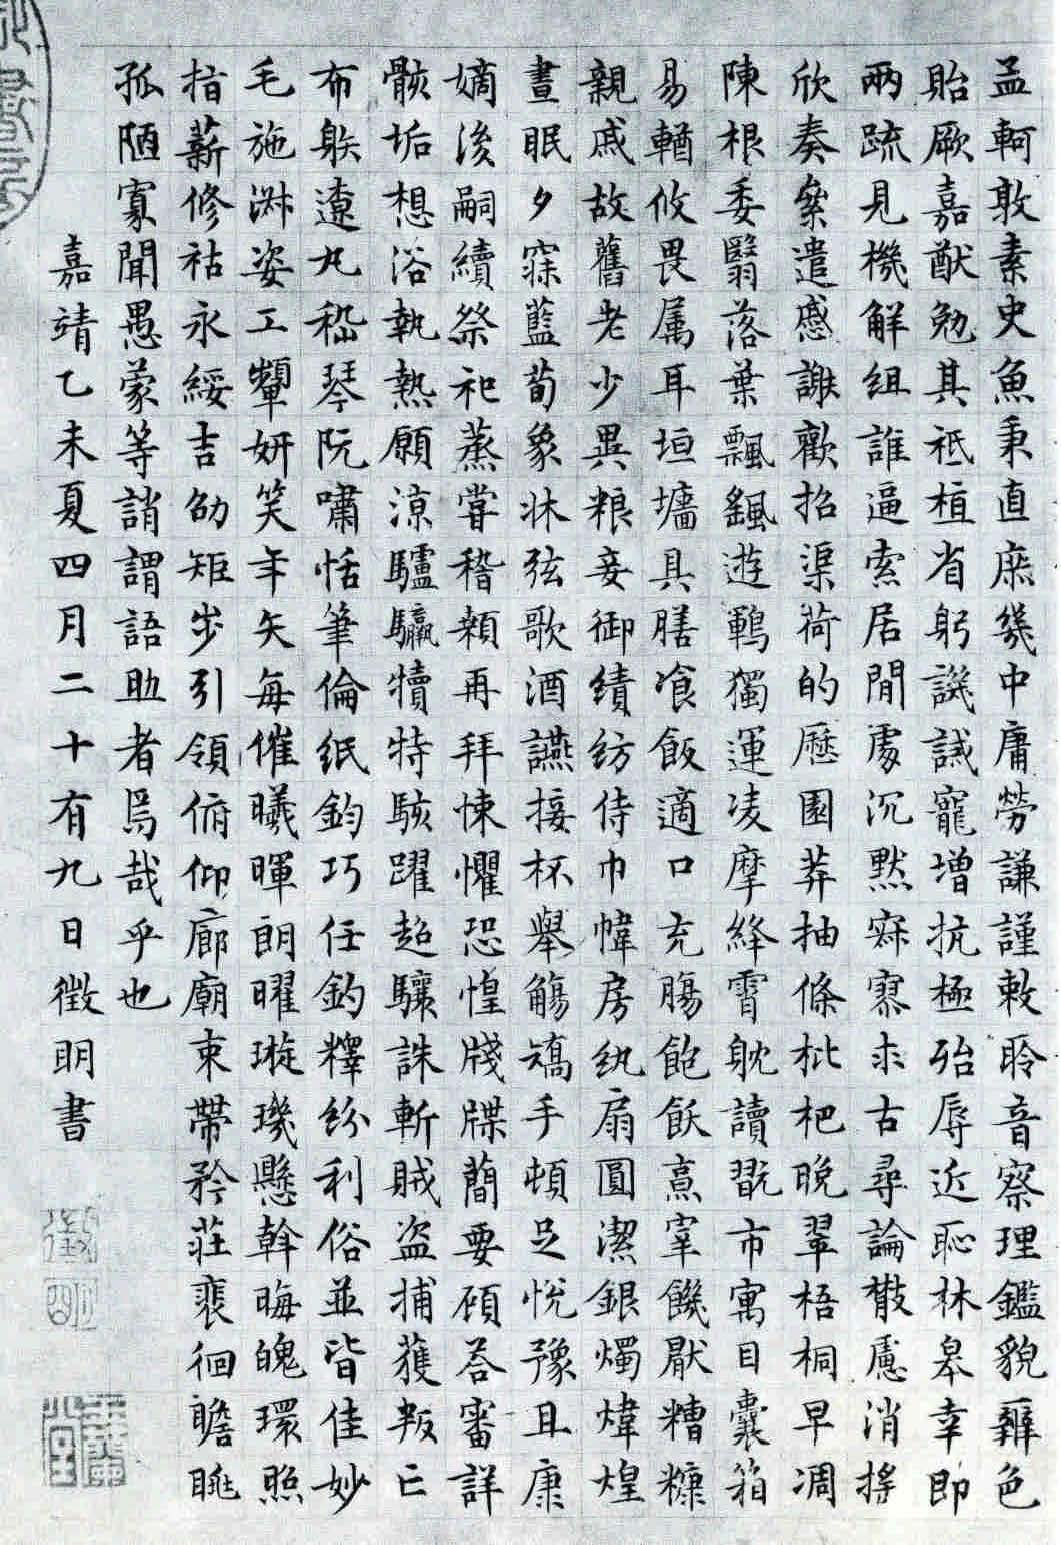 孟軻敦素史魚秉直庶幾中庸勞謙謹敕聆音察理鑑貌辨色
貽厥嘉猷勉其祗植省躬譏誡寵增抗極殆辱近恥林皋幸即
兩疏見機解組誰逼索居閒處沉默寂寥求古尋論散慮消搖
欣奏累遣慼謝歡招渠荷的歷園莽抽條枇杷晚翠梧桐早凋
陳根委翳落葉飄颻遊鵾獨運凌摩絳霄耽讀翫市寓目囊箱
易輶攸畏属耳垣墻具膳飡飯適口充腸飽飫烹宰饑厭糟糠
親戚故舊老少異粮妾御績紡侍巾幃房紈扇圓潔銀燭煒煌
晝眠夕寐藍荀象牀弦歌酒讌接杯舉觴矯手頓足悅豫且康
嫡後嗣續祭祀蒸嘗稽顙再拜悚懼恐惶牋牒簡要顧答審詳
骸垢想浴執熱願涼驢騾犢特駭躍超驤誅斬賊盜捕獲叛亡
布射遼丸嵇琴阮嘯恬筆倫紙鈞巧任釣釋紛利俗並皆佳妙
毛施淑姿工顰妍笑年矢每催曦暉朗曜璇璣懸斡晦魄環照
指薪修祜永綏吉劭矩步引領俯仰廊廟束帶矜莊裴徊瞻眺
孤陋寡聞愚蒙等誚謂語助者焉哉乎也
嘉靖乙未夏四月二十有九日徵明書
徵明
玉蘭堂